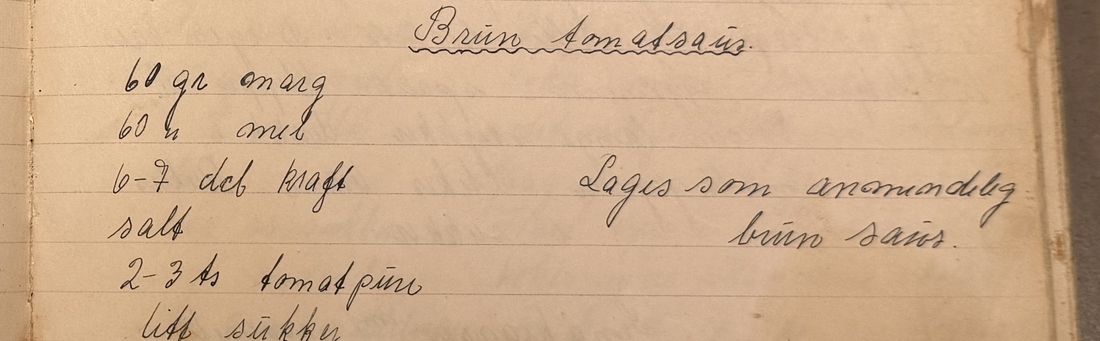 Brun tomatsaus.
60 gr marg
60 " mel
6-7 dcl kraft
salt
2-3 ts tomatpure
litt sukker
Lages som anmindelig
brun saus.